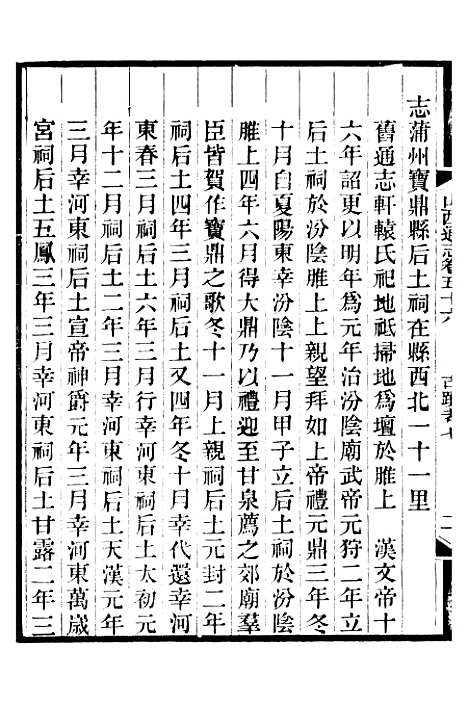 志蒲州寶鼎縣后土祠在縣西北一十一里
舊通志軒轅氏祀地祇掃地爲壇於脽上　漢文帝十
六年詔更以明年爲元年治汾陰廟武帝元狩二年立
后土祠於汾陰脽上上親望拜如上帝禮元鼎三年冬
十月自夏陽東幸汾陰十一月甲子立后土祠於汾陰
脽上四年六月得大鼎乃以禮迎至甘泉薦之郊廟羣
臣皆賀作寶鼎之歌冬十一月上親祠后土元封二年
祠后土四年三月祠后土又四年冬十月幸代還幸河
東春三月祠后土六年三月行幸河東祠后土太初元
年十二月祠后土二年三月幸河東祠后土天漢元年
三月幸河東祠后土宣帝神爵元年三月幸河東萬歲
宮祠后土五鳳三年三月幸河東祠后土甘露二年三